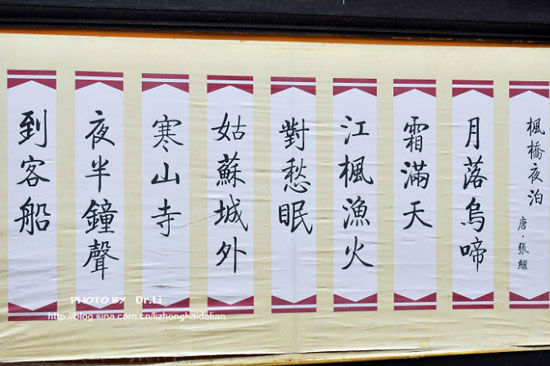 楓橋夜泊
唐·張繼
月落烏啼
霜滿天
江楓漁火
對愁眠
姑蘇城外
寒山寺
夜半鐘聲
到客船
PHOTO BY Dr.Li
http://blog.sina.com.cn/lizhonghaidalian